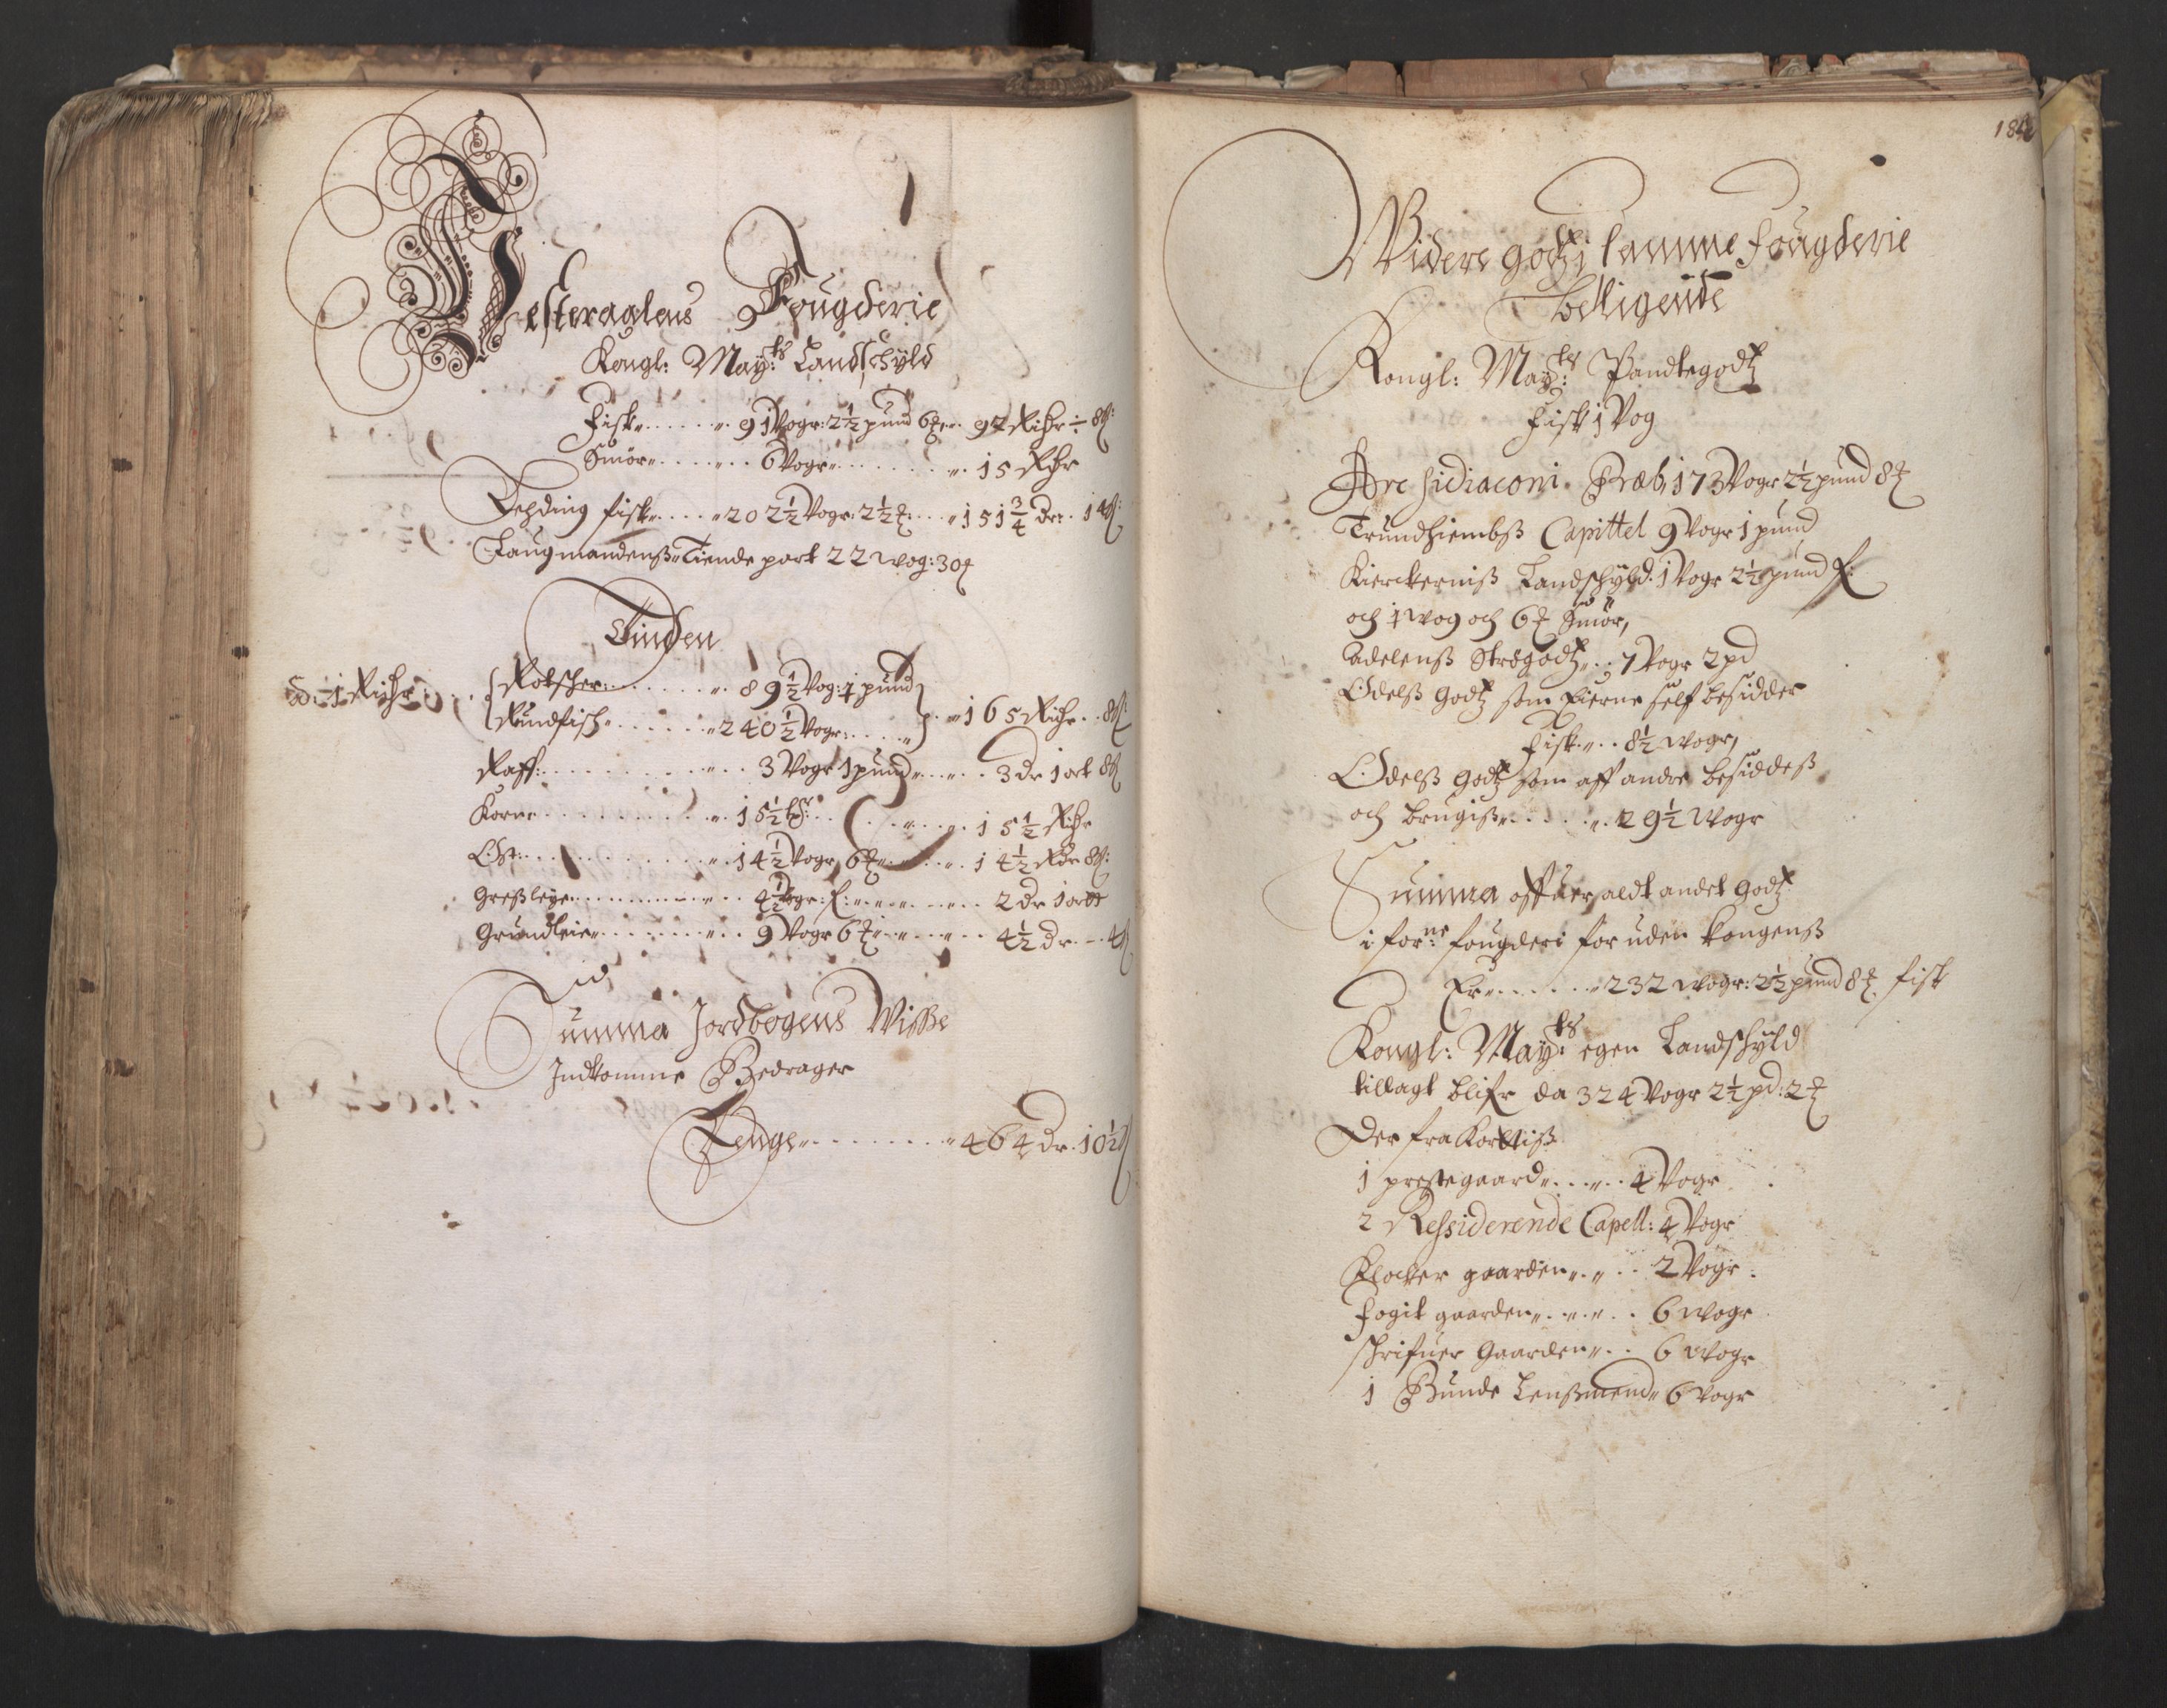 Vesteraalens Fougderie
Kongl: May:ts Landschÿld
Fisk 91 Vogr: 2½ pund 6 ℔ 92 Richr ÷ 8 ß:
Smör 6 Vogr 15 Richr
Lehding fisk 202½ Vogr: 2½ ℔: 151¾ dr: 14 ß:
Laugmandenß Tiende part 22 wog: 30 ℔
Tinden
Rotscher 89½ Vog: 1 pund
Rundfisch 240½ Vogr: 165 Richr 8 ß:
Raff: 3 Vogr 1 pund 3 dr 1 ort 8 ß
Korn 15½ 15½ Richr
Ost: 14½ Vogr 6 ℔ 14½ Rdr 8 ß:
Greßleye 4½ Vogr: f: 2 dr 1 ortt
Grundleie 9 Vogr 6 ℔ 4½ dr 4 ß
Summa Jordbogens Wisse
Indkomme Bedrager
Penge 464 dr. 10½ ß
Widere godtz i samme Fougderie
belligende
Kongl: May:ts Pandtegodtz
Fisk 1 Vog
Archidiaconi Præb, 173 Vogr 2½ pund 8 ℔
Trundhiembß Capittel 9 Vogr 1 pund
Kierckerniß Landschÿld: 1 Vogr 2½ pund f:
och 1 wog och 6 ℔ Smör,
Adelenß Strögodtz 7 Vogr 2 pd
Odelß Godtz som Eierne self besidder
Fisk 8½ wogr,
Odelß Godtz som aff andre besiddeß
och brugiß 29½ Wogr
Summa offuer aldt andet Godtz
i forne: fougderi for uden kongenß
Er 232 wogr: 2½ pund 8 ℔ fisk
Kongl: May:ts egen Landschÿld
tillagt blifr da 324 Vogr 2½ pd: 2 ℔
Der fra Kortiß
1 prestegaard 4 Vogr
2 Ressiderende Capell: 4 Vogr
Klocker gaarden 2 Vogr
Fogit gaarden 6 wogr
Schrifuer Gaarden 6 Wogr
1 Bunde Lenßmend 6 Vogr